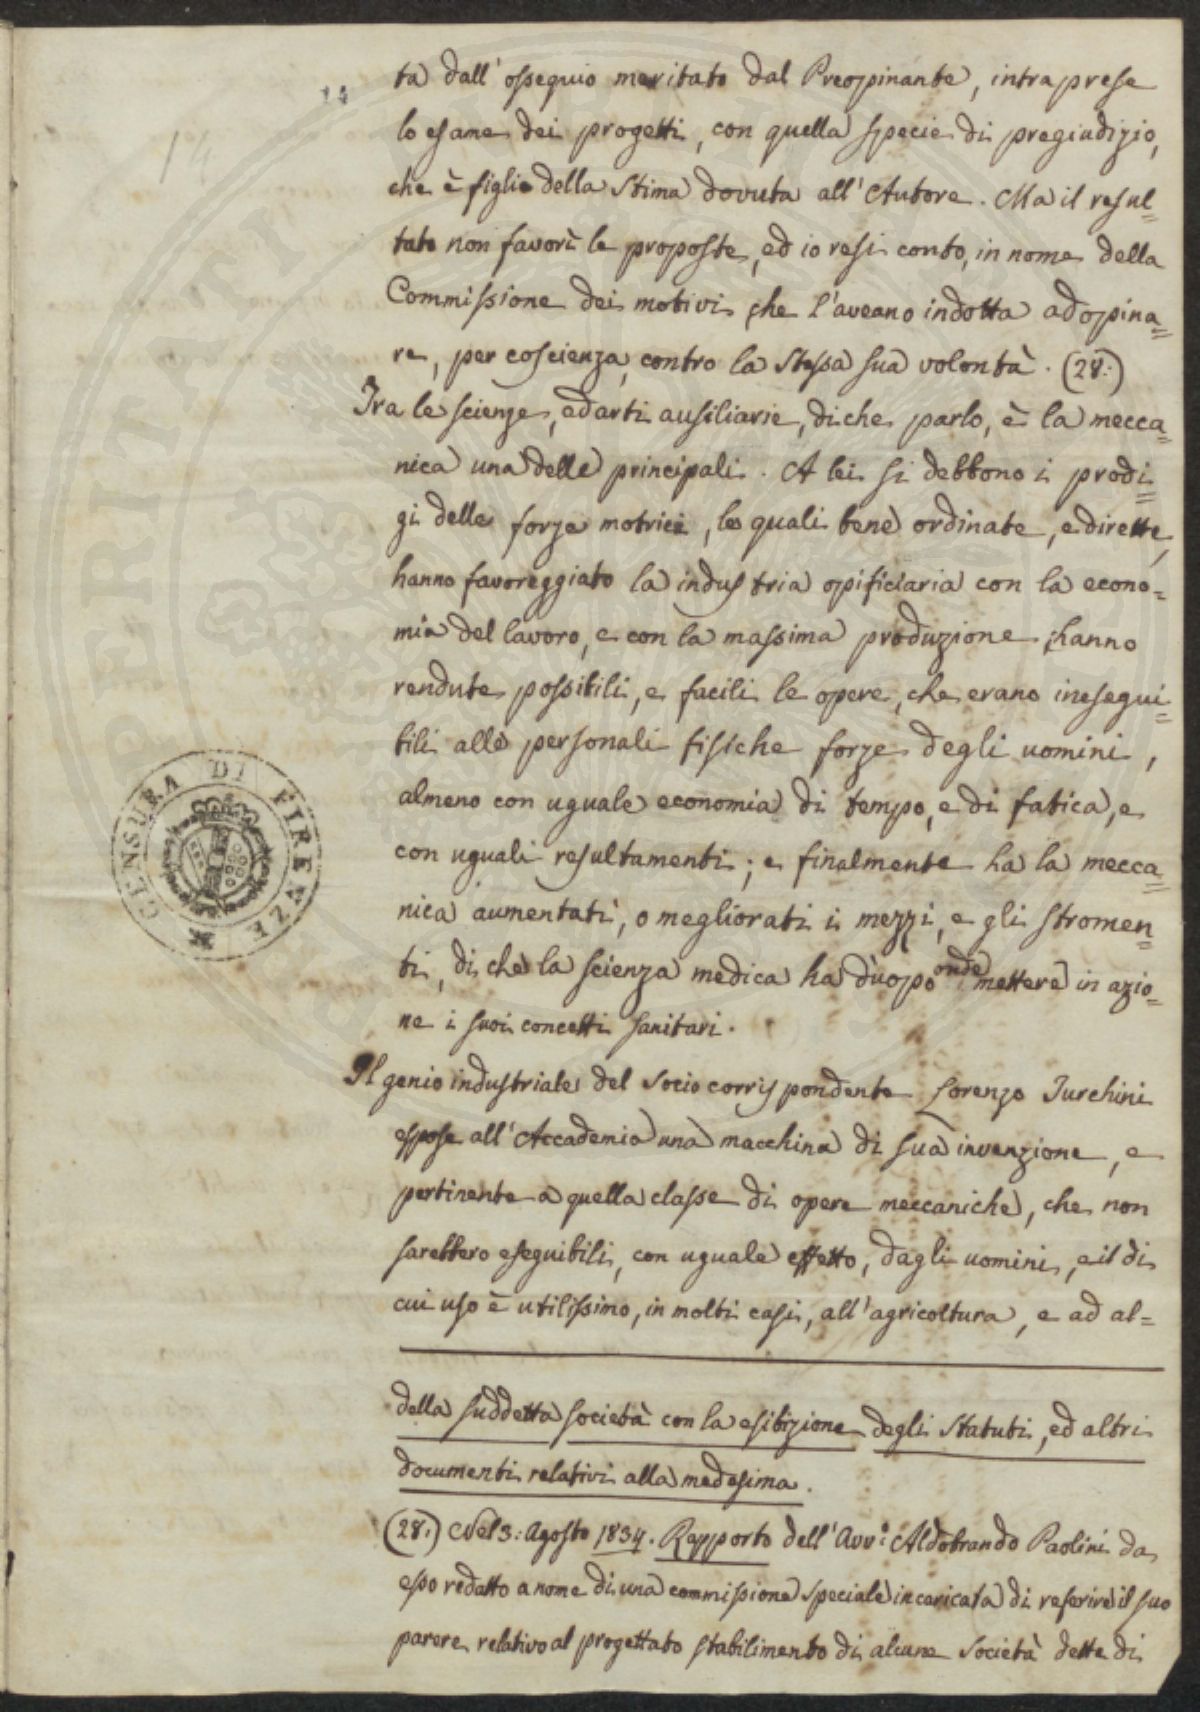 14
ta dall'ossequio meritato dal Preopinante, intraprese
lo esame dei progetti, con quella specie di pregiudizio,
che è figlio della stima dovuta all'Autore. Ma il resul=
tato non favorì le proposte, ed io resi conto, in nome della
Commissione dei motivi che l'aveano indotta ad opina=
re, per coscienza, contro la stessa sua volontà. (28.)
Tra le scienze, ed arti ausiliarie, di che parlo, è la mecca=
nica una delle principali. A lei si debbono i prodi=
gi delle forze motrici, le quali bene ordinate, e dirette,
hanno favoreggiato la industria opificiaria con la econo=
mia del lavoro, e con la massima produzione; hanno
rendute possibili, e facili le opere, che erano inesegui=
bili alle personali fisiche forze degli uomini,
almeno con uguale economia di tempo, e di fatica, e
con uguali resultamenti; e finalmente ha la mecca=
nica aumentati, o megliorati i mezzi, e gli stromen=
ti, di che la scienza medica ha d'uopo onde mettere in azio=
ne i suoi concetti sanitari.
Il genio industriale del socio corrispondente Lorenzo Turchini
espose all'Accademia una macchina di sua invenzione, e
pertinente a quella classe di opere meccaniche, che non
sarebbero eseguibili, con uguale effetto, dagli uomini, e il di
cui uso è utilissimo, in molti casi, all'agricoltura, e ad al=
della suddetta società con la esibizione degli statuti, ed altri
documenti relativi alla medesima.
(28.) Nel 3: Agosto 1834. Rapporto dell'Avv:° Aldobrando Paolini da
esso redatto a nome di una commissione speciale incaricata di referire il suo
parere relativo al progettato stabilimento di alcune società dette di
CENSURA DI FIRENZE
PERITATI